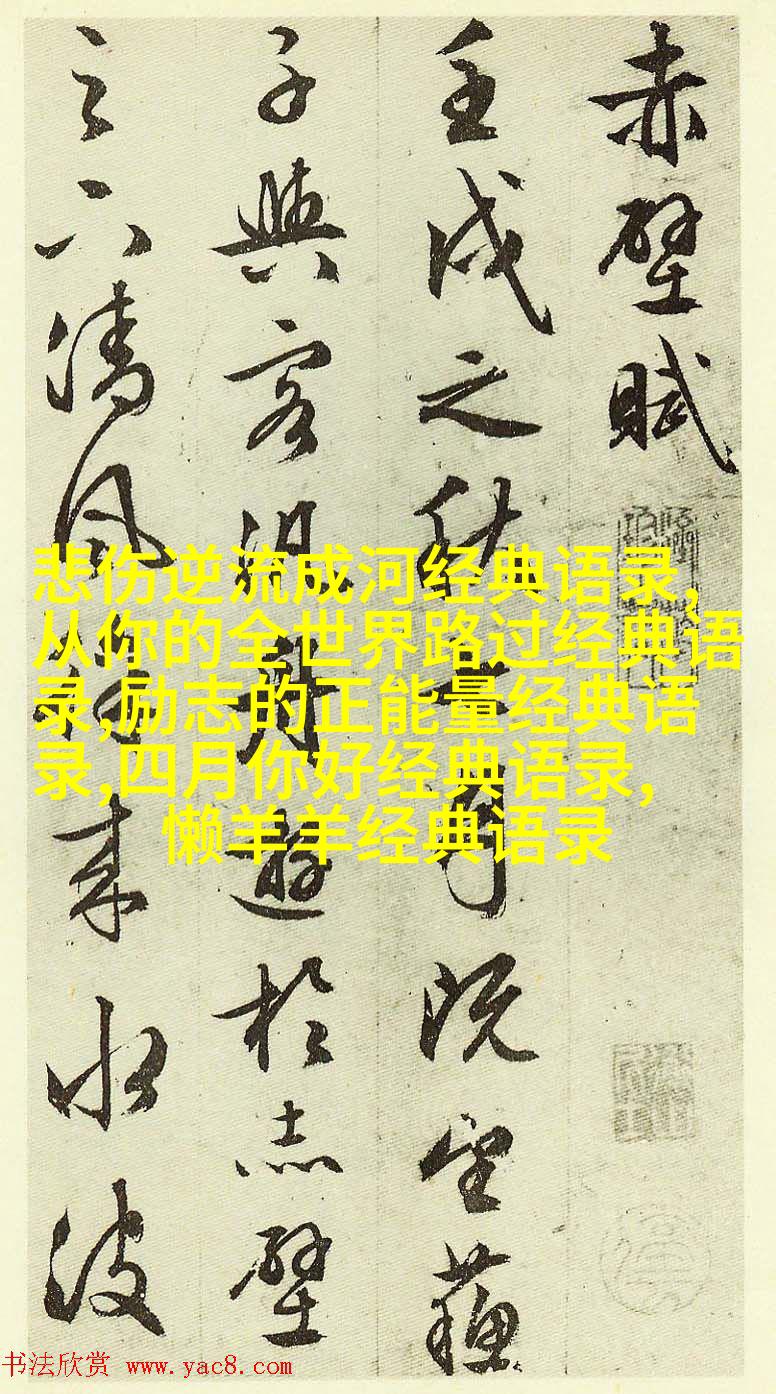 赤壁賦
壬戌之秋七月既望蘓
子與客泛舟遊於赤壁
之下清風徐來水波
悲伤逆流成河经典语录,
从你的全世界路过经典语
录,励志的正能量经典语
录,四月你好经典语录,
懒羊羊经典语录
书法欣赏 www.yac8.com